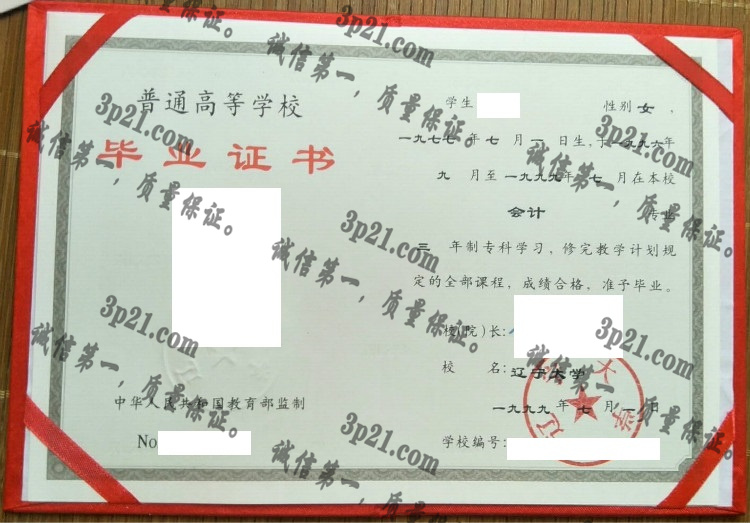 普通高等学校
毕业证书
中华人民共和国教育部监制
No
学生 性别 女 ，
一九七七 年 七 月 一 日生，于 一九九六 年
九 月至 一九九九 年 七 月在本校
会计 专业
三 年制专科学习，修完教学计划规
定的全部课程，成绩合格，准予毕业。
校(院)长：
校 名：辽宁大学
一九九九 年 七 月 一 日
学校编号：
辽宁大学
3p21.com
诚信第一，质量保证。
3p21.com
诚信第一，质量保证。
3p21.com
诚信第一，质量保证。
3p21.com
诚信第一，质量保证。
3p21.com
诚信第一，质量保证。
3p21.com
诚信第一，质量保证。
3p21.com
诚信第一，质量保证。